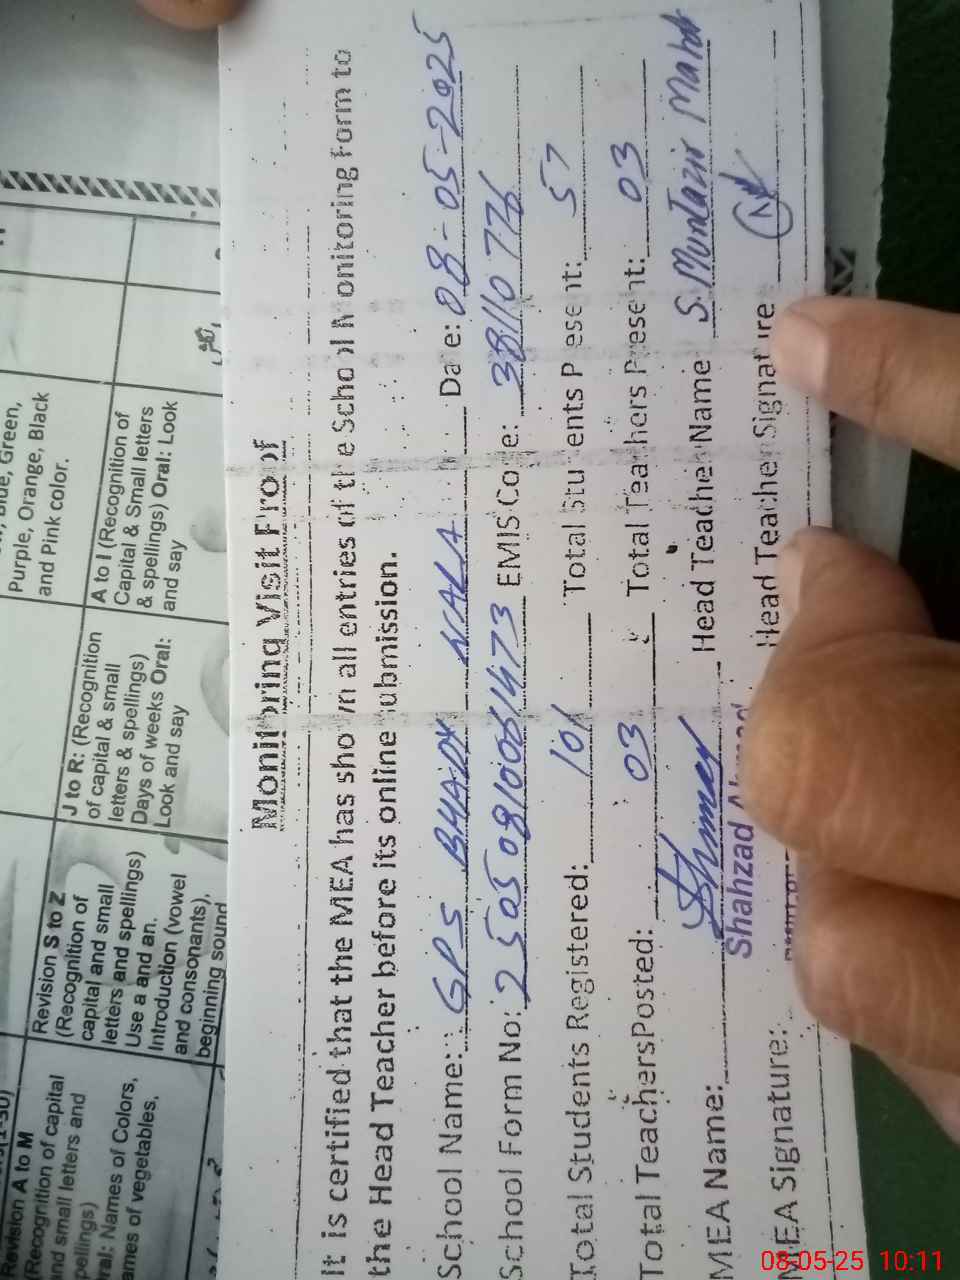 Monitoring Visit Proof
It is certified that the MEA has shown all entries of the School Monitoring Form to
the Head Teacher before its online submission.
School Name: GPS BHADY NALA Date: 08-05-2025
School Form No: 25050810061473 EMIS Code: 38110776
Total Students Registered: 101 Total Students Present: 57
Total Teachers Posted: 03 Total Teachers Present: 03
MEA Name: Head Teacher Name S. Muntazir
Shahzad
MEA Signature: Head Teacher Signature
Blue, Green,
Purple, Orange, Black
and Pink color.
A to I (Recognition of
Capital & Small letters
& spellings) Oral: Look
and say
J to R: (Recognition
of capital & small
letters & spellings)
Days of weeks Oral:
Look and say
Revision S to Z
(Recognition of
capital and small
letters and spellings)
Use a and an.
Introduction (vowel
and consonants),
beginning sound
Revision A to M
(Recognition of capital
and small letters and
spellings)
Oral: Names of Colors,
names of vegetables,
08-05-25 10:11